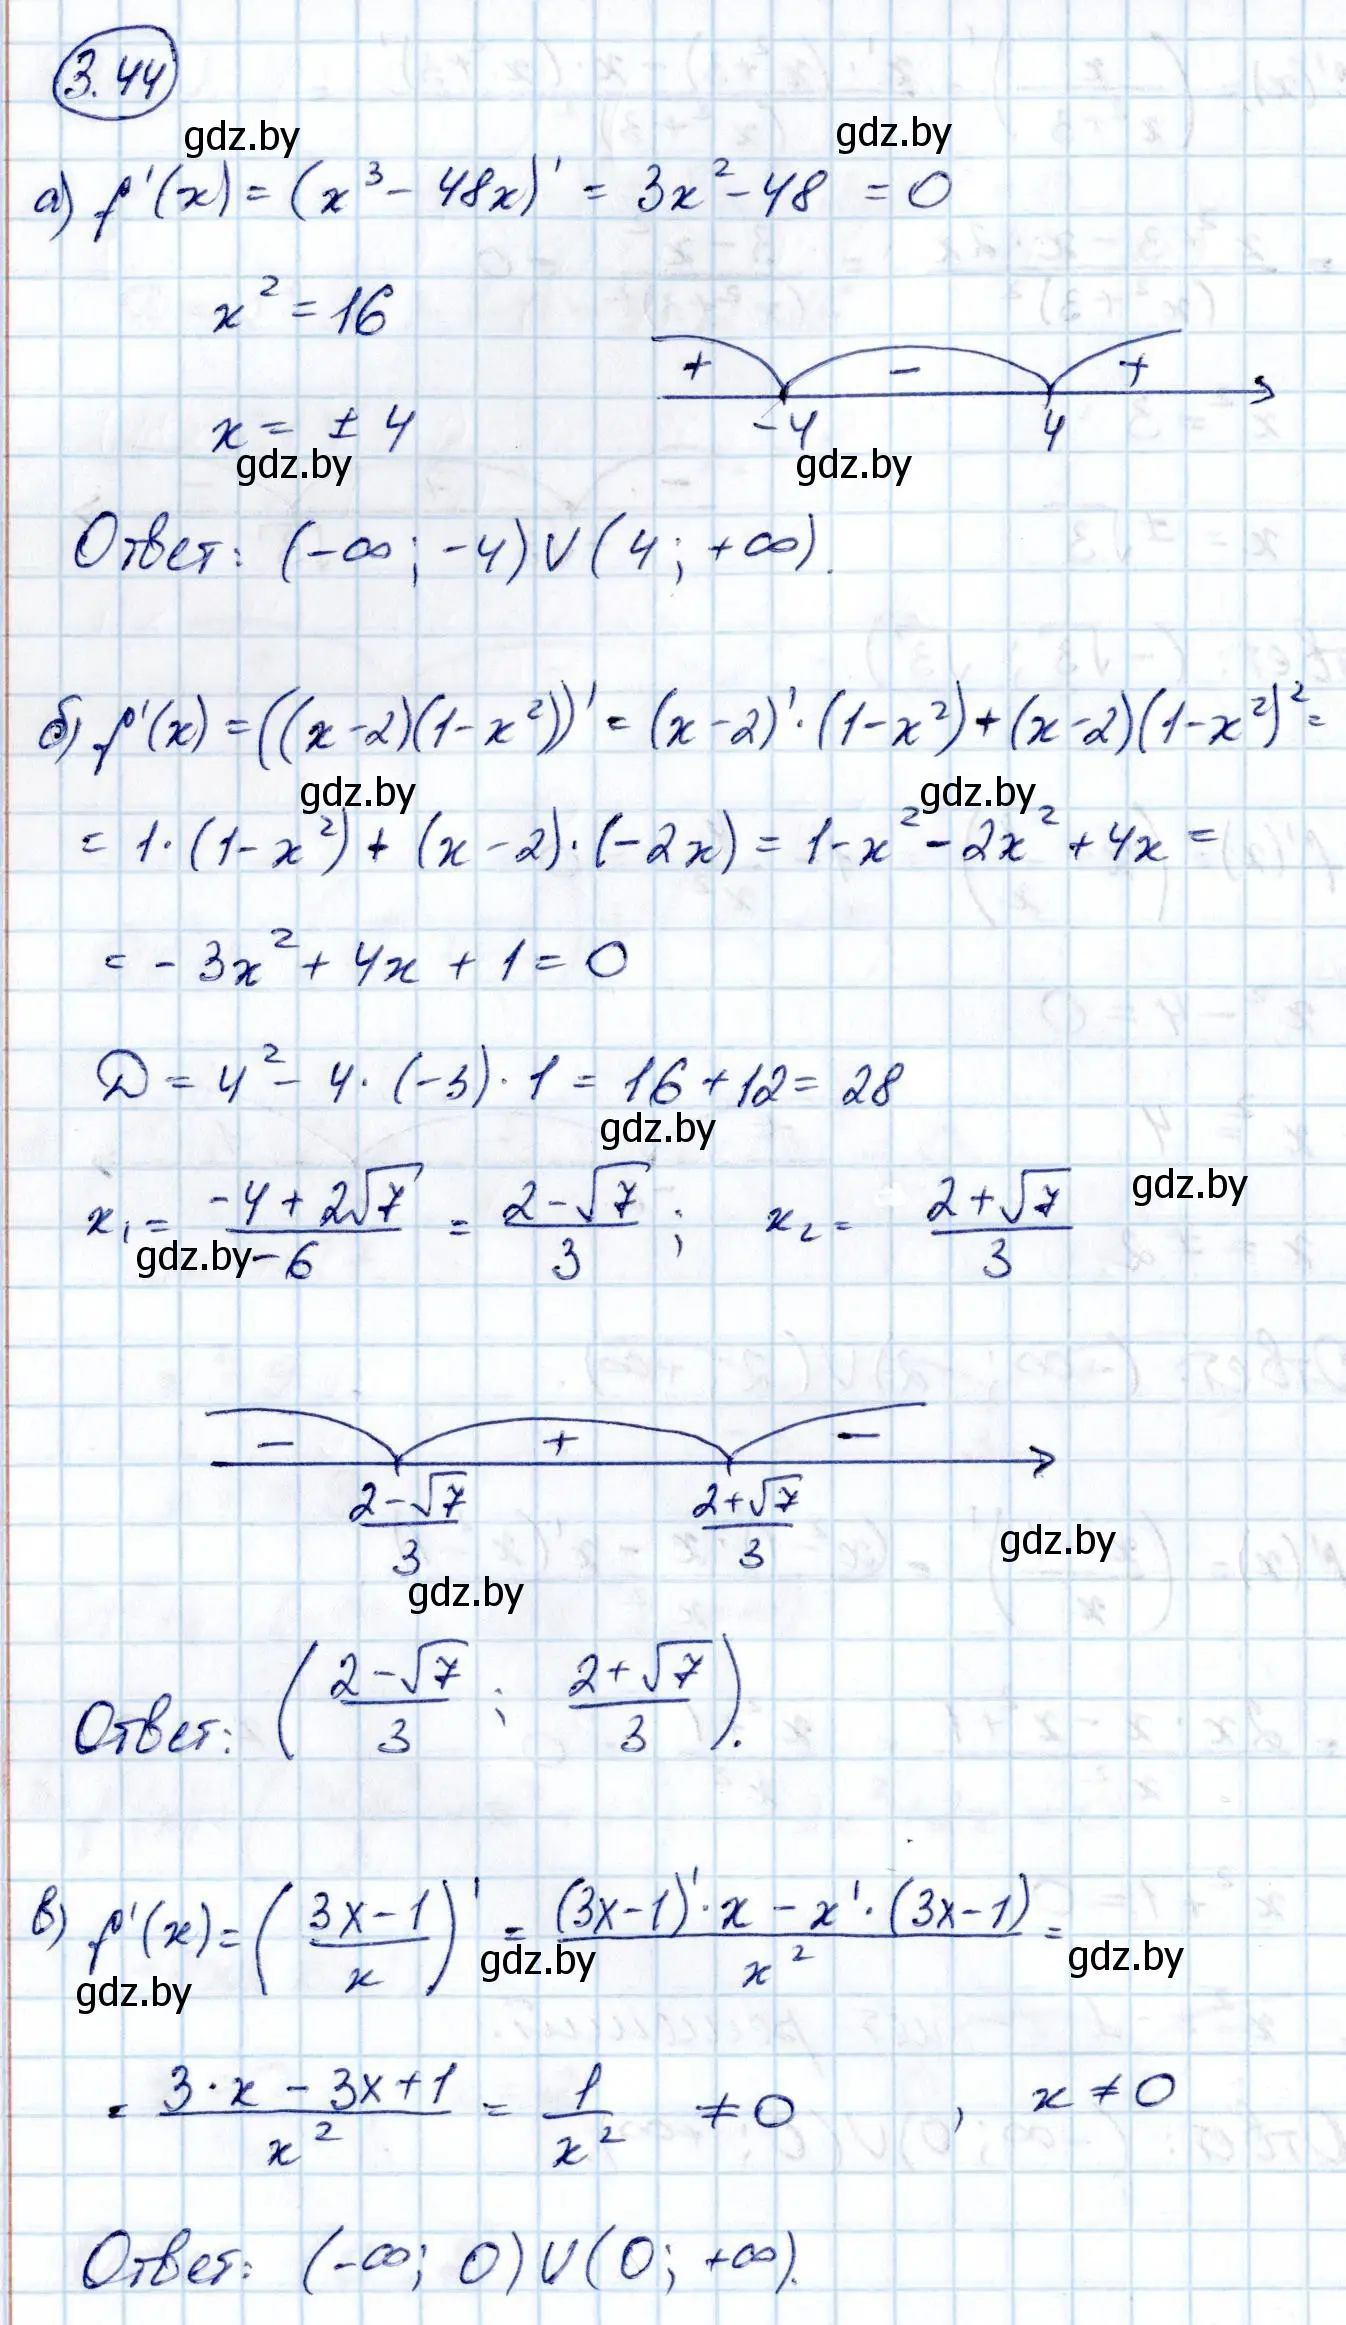 3.44
gdz.by gdz.by
а) f'(x) = (x³ - 48x)' = 3x² - 48 = 0
x² = 16
+ - +
-4 4
x = ± 4
gdz.by gdz.by
Ответ: (-∞; -4) ∪ (4; +∞).
б) f'(x) = ((x-2)(1-x²))' = (x-2)'·(1-x²)+(x-2)(1-x²)² =
gdz.by gdz.by
= 1·(1-x²) + (x-2)·(-2x) = 1-x² - 2x² + 4x =
= -3x² + 4x + 1 = 0
D = 4² - 4·(-3)·1 = 16 + 12 = 28
gdz.by
x₁ = (-4 + 2√7)/(-6) = (2-√7)/3 ; x₂ = (2+√7)/3
gdz.by gdz.by
- + -
(2-√7)/3 (2+√7)/3
gdz.by gdz.by
Ответ: ((2-√7)/3 ; (2+√7)/3).
в) f'(x) = ((3x-1)/x)' = ((3x-1)'·x - x'·(3x-1))/x² =
gdz.by gdz.by gdz.by
= (3·x - 3x + 1)/x² = 1/x² ≠ 0 , x ≠ 0
Ответ: (-∞; 0) ∪ (0; +∞).